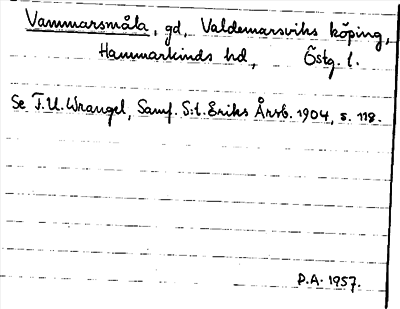 Vammarsmåla, gd, Valdemarsviks köping,
Hammarkinds hd, Östg. l.
Se F.U. Wrangel, Samf. S:t. Eriks Årsb. 1904, s. 118.
P.A. 1957.